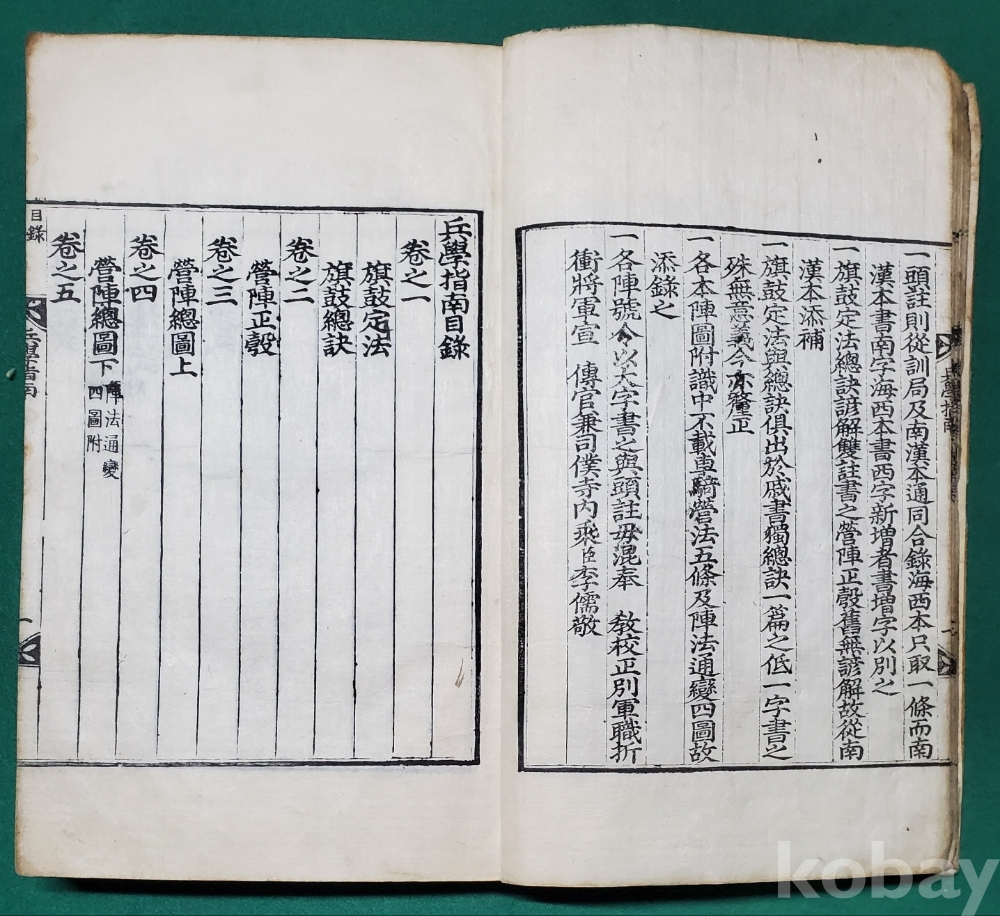 一頭註則從訓局及南漢本通同合錄海西本只取一條而南
漢本書南字海西本書西字新增者書增字以別之
一旗鼓定法總訣諺解雙註書之營陣正彀舊無諺解故從南
漢本添補
一旗鼓定法與總訣俱出於戚書獨總訣一篇之低一字書之
殊無意義今亦釐正
一各本陣圖附識中不載車騎營法五條及陣法通變四圖故
添錄之
一各陣號今以大字書之與頭註毋混奉 敎校正別軍職折
衝將軍宣 傳官兼司僕寺內乘臣李儒敬
兵學指南目錄
卷之一
旗鼓定法
旗鼓總訣
卷之二
營陣正彀
卷之三
營陣總圖上
卷之四
營陣總圖下 陣法通變四圖附
卷之五
目錄
兵學指南
一
兵學指南
kobay